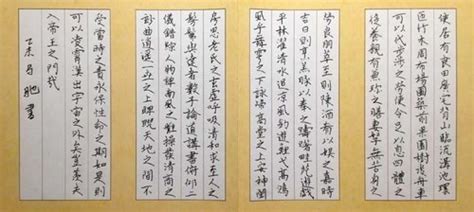 使居有良田廣宅背山臨流溝池環
匝竹木周布場圃築前果園樹後舟車
足以代步涉之難使令足以息四體之
役養親有兼珍之膳妻孥無苦身之
勞良朋萃至則陳酒肴以娛之嘉時
吉日則烹羔豚以奉之躊躇畦苑遊戲
平林濯清水追涼風釣遊鯉弋高鴻
風乎舞雩之下詠歸高堂之上安神閨
房思老氏之玄虛呼吸清和求至人之
髣髴與達者數子論道講書俯仰二
儀錯綜人物彈南風之雅操發清商之
妙曲逍遙一世之上睥睨天地之間不
受當時之責永保性命之期如是則
可以凌霄漢出宇宙之外矣豈羨夫
入帝王之門哉